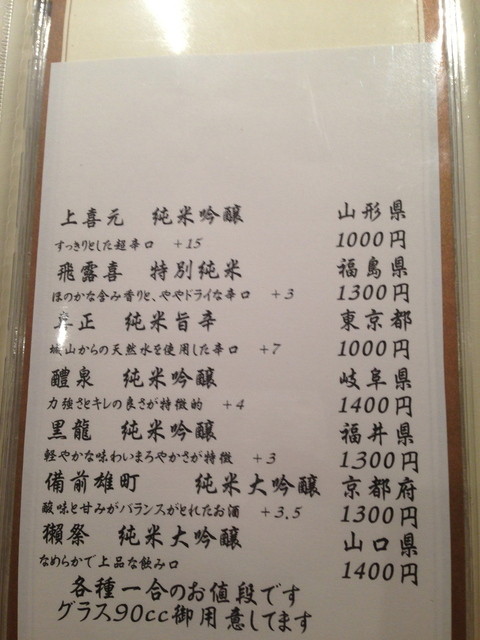 上喜元 純米吟醸 山形県
すっきりとした超辛口 +15 1000円
飛露喜 特別純米 福島県
ほのかな含み香りと、ややドライな辛口 +3 1300円
正 純米旨辛 東京都
城山からの天然水を使用した辛口 +7 1000円
醴泉 純米吟醸 岐阜県
力強さとキレの良さが特徴的 +4 1400円
黒龍 純米吟醸 福井県
軽やかな味わいまろやかさが特徴 +3 1300円
備前雄町 純米大吟醸 京都府
酸味と甘みがバランスがとれたお酒 +3.5 1300円
獺祭 純米大吟醸 山口県
なめらかで上品な飲み口 1400円
各種一合のお値段です
グラス90cc御用意してます